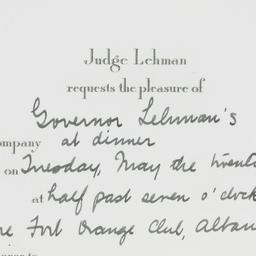 Judge Lehman
requests the pleasure of
Governor Lehman's
ompany at dinner
on Tuesday, May the twenti
at half past seven o'clock
he Fort Orange Club, Alban